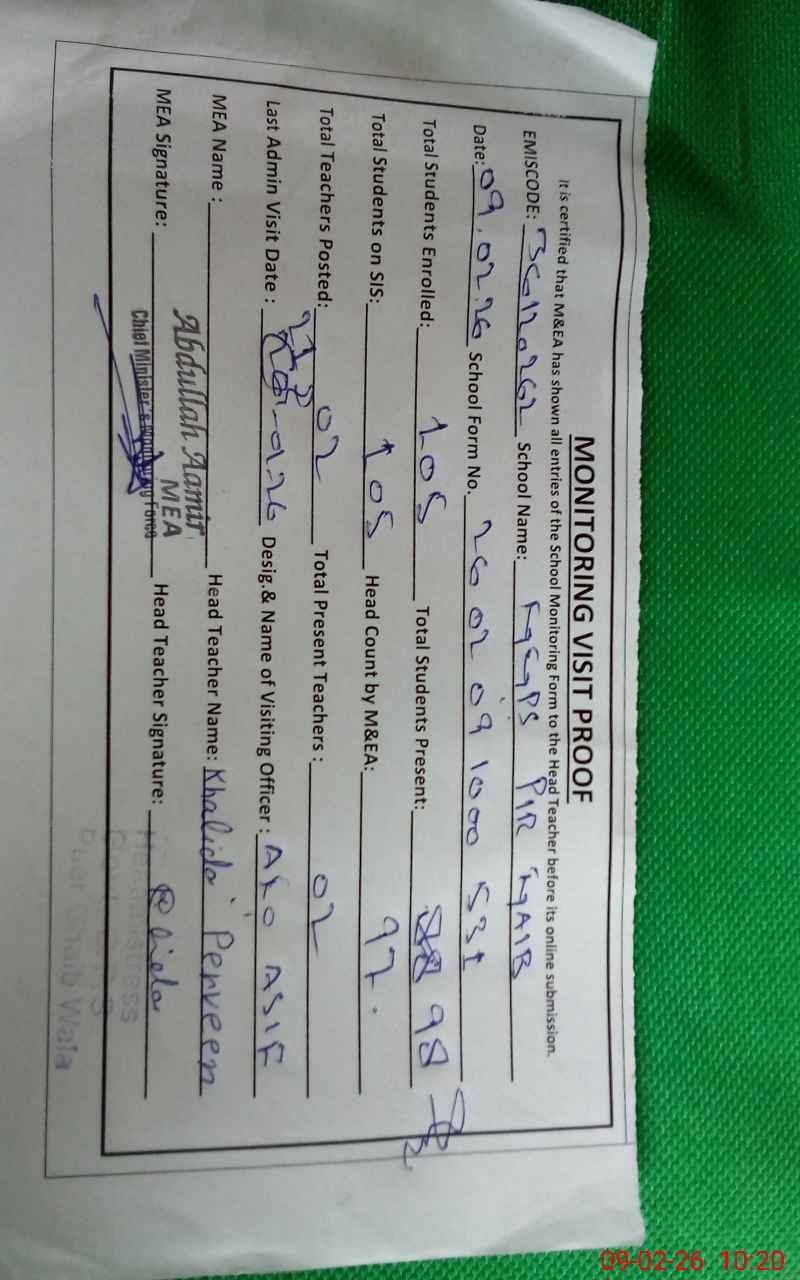 MONITORING VISIT PROOF
It is certified that M&EA has shown all entries of the School Monitoring Form to the Head Teacher before its online submission.
EMISCODE: 36120262 School Name: PIR
Date: 09.02.26 School Form No. 26 02 09 1000 531
Total Students Enrolled: 105 Total Students Present: 98
Total Students on SIS: 105 Head Count by M&EA: 97.
Total Teachers Posted: 02 Total Present Teachers : 02
Last Admin Visit Date : Desig.& Name of Visiting Officer : ASIF
MEA Name : Abdullah Aamir Head Teacher Name: Khalida Perveen
MEA
MEA Signature: Head Teacher Signature:
Chief Minister's Monitoring Force
Headmistress
Wala
09-02-26 10:20